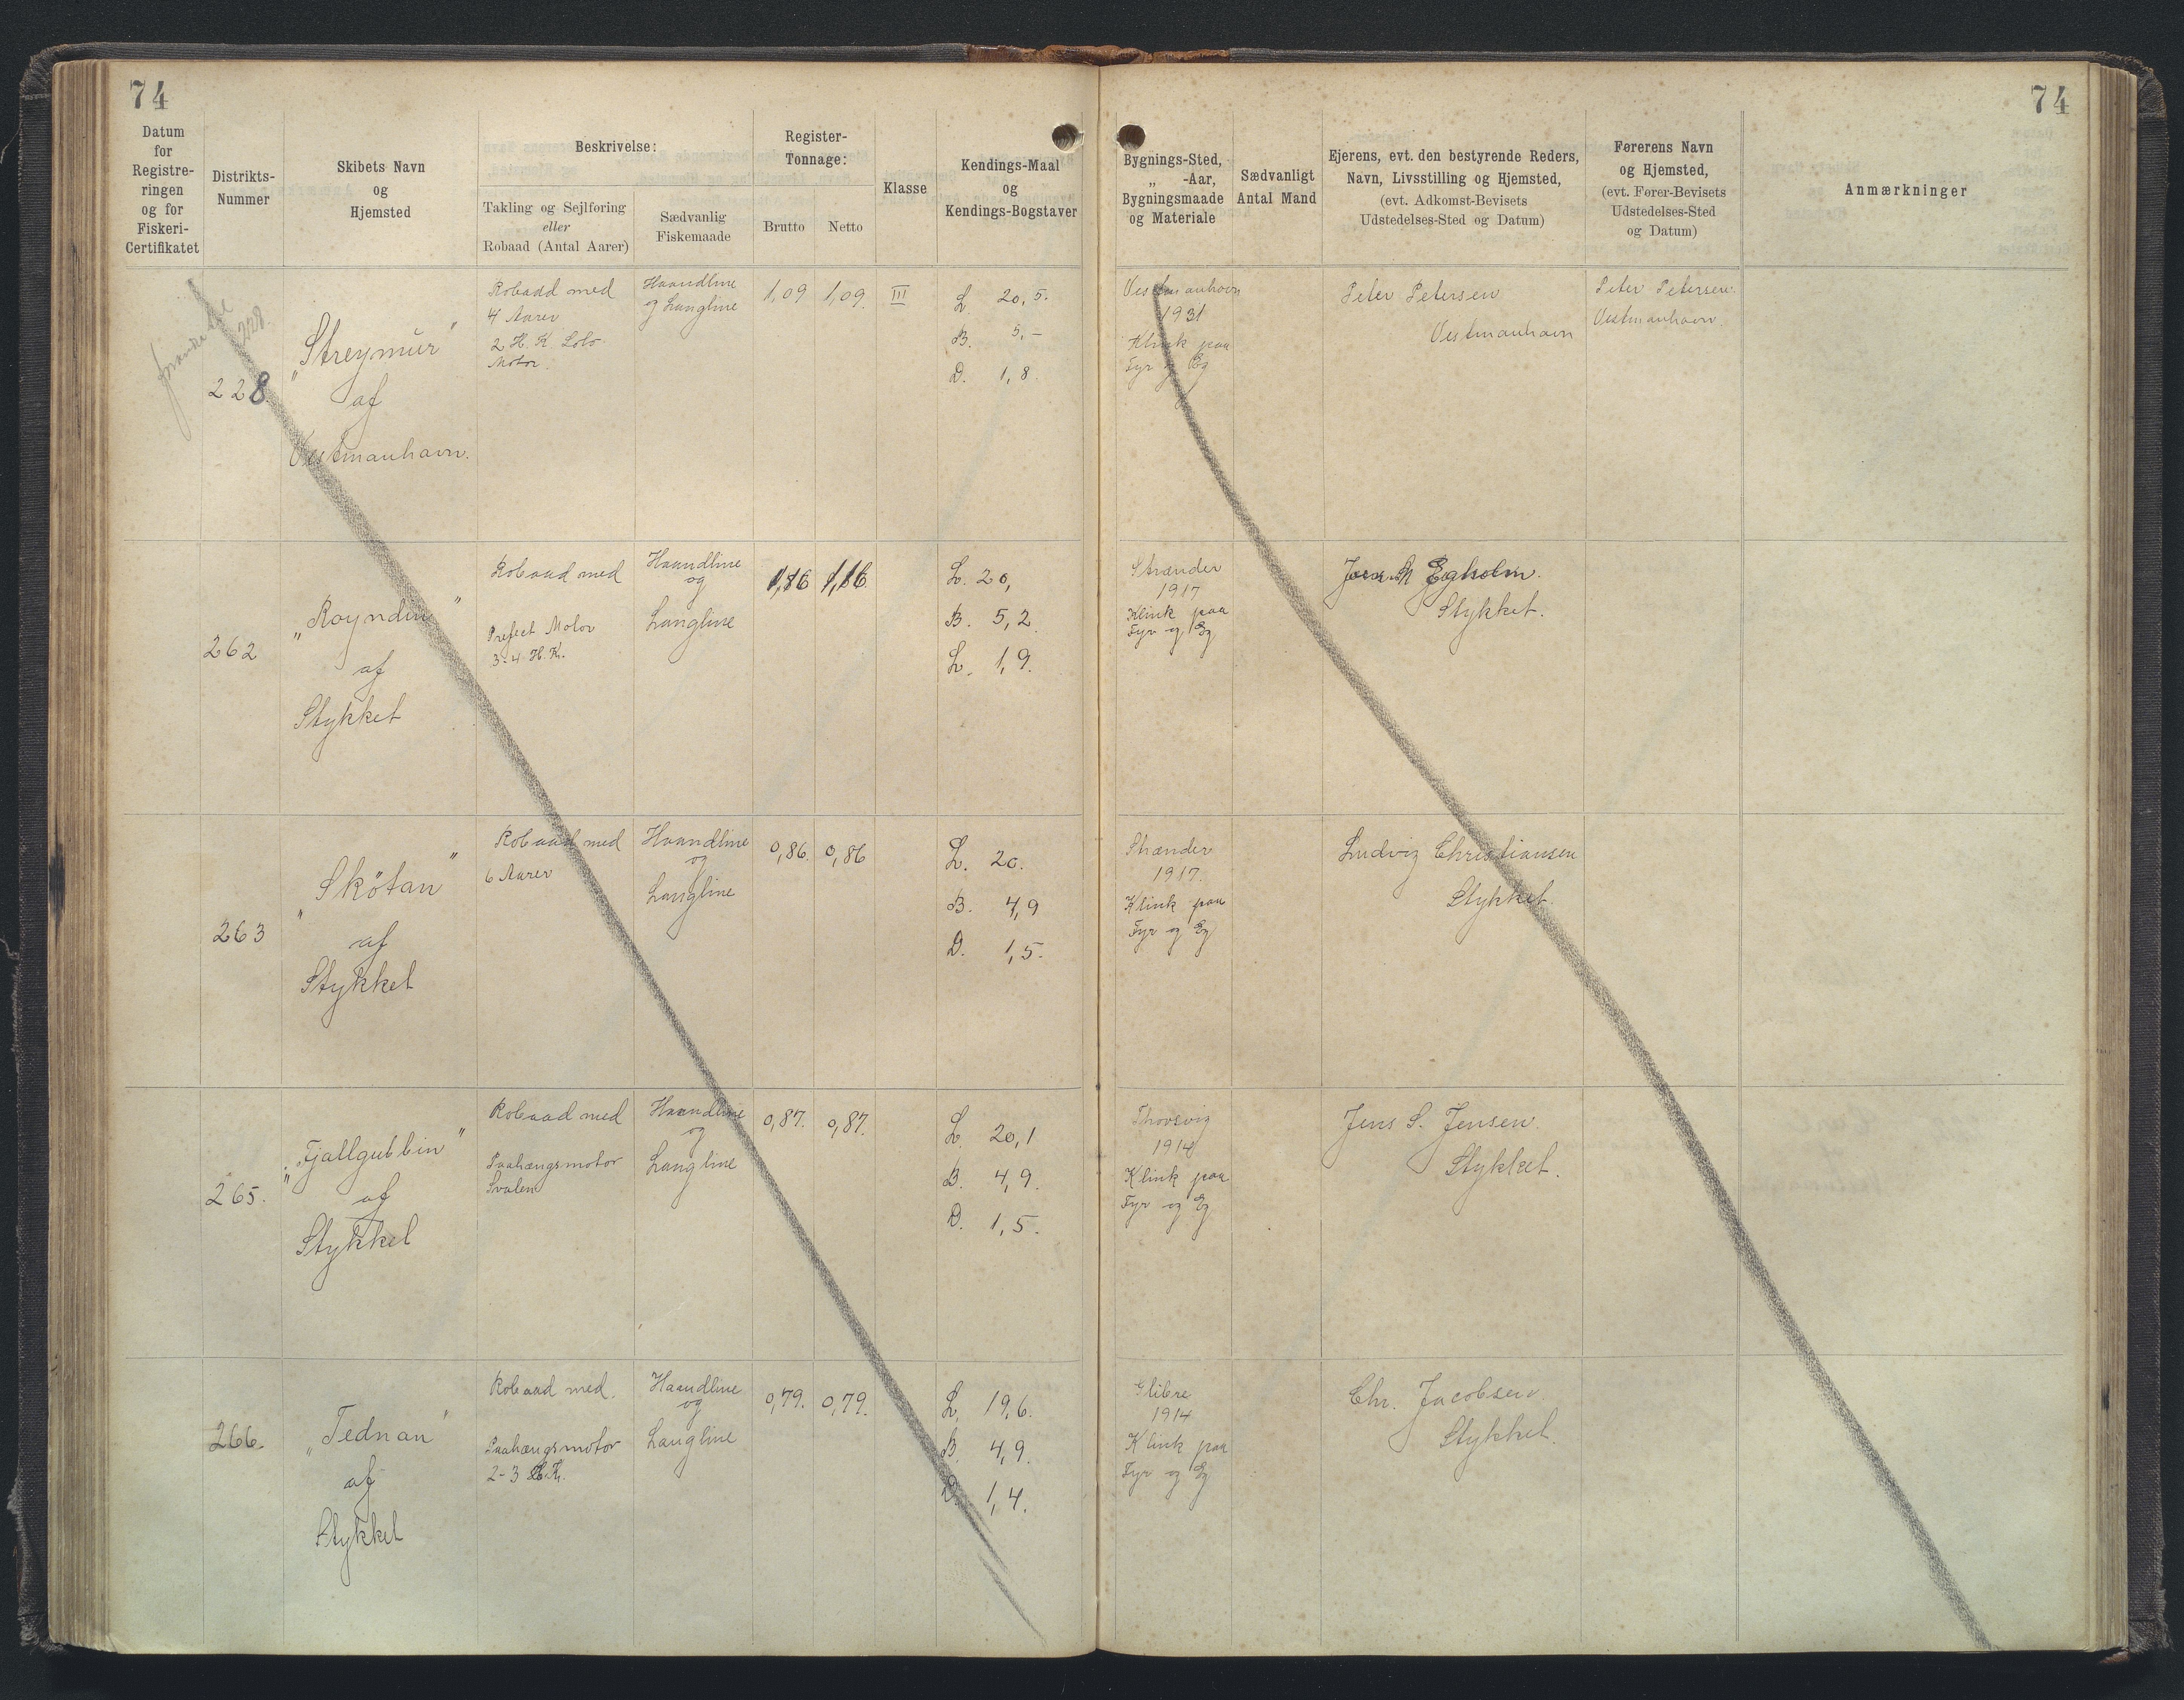 74
74
Datum
for
Registre-
ringen
og for
Fiskeri-
Certifikatet
Distrikts-
Nummer
Skibets Navn
og
Hjemsted
Beskrivelse:
Takling og Sejlføring
eller
Robaad (Antal Aarer)
Sædvanlig
Fiskemaade
Register-
Tonnage:
Brutto
Netto
Klasse
Kendings-Maal
og
Kendings-Bogstaver
Bygnings-Sted,
„ -Aar,
Bygningsmaade
og Materiale
Sædvanligt
Antal Mand
Ejerens, evt. den bestyrende Reders,
Navn, Livsstilling og Hjemsted,
(evt. Adkomst-Bevisets
Udstedelses-Sted og Datum)
Førerens Navn
og Hjemsted,
(evt. Fører-Bevisets
Udstedelses-Sted
og Datum)
Anmærkninger
228.
228.
„Streymur"
af
Vestmanhavn.
Robaad med
4 Aarer
2 H. K. Solo
Motor.
Haandline
og Langline
1,09
1,09.
III
L. 20,5.
B. 5,-
D. 1,8.
Vestmanhavn
1931
Klink paa
Fyr og Eg
Peter Petersen
Vestmanhavn
Peter Petersen.
Vestmanhavn.
262
„Royndin"
af
Stykket
Robaad med
Prefect Motor
3-4 H. K.
Haandline
og
Langline
1,16
1,16
L. 20,
B. 5,2.
L. 1,9.
Strænder
1917
Klink paa
Fyr og Eg
Egholm.
Stykket.
263
„Skötan"
af
Stykket
Robaad med
6 Aarer
Haandline
og
Langline
0,86.
0,86
L. 20.
B. 4,9
D. 1,5.
Strænder
1917.
Klink paa
Fyr og Eg
Ludvig Christiansen
Stykket.
265.
„Fjallgubbin"
af
Stykket
Robaad med
Paahængsmotor
Svalen
Haandline
og
Langline
0,87.
0,87.
L. 20,1
B. 4,9.
D. 1,5.
Thorsvig
1914
Klink paa
Fyr og Eg
Jens S. Jensen.
Stykket.
266.
„Tednan"
af
Stykket
Robaad med.
Paahængsmotor
2-3 H. K.
Haandline
og
Langline
0,79.
0,79.
L. 19,6.
B. 4,9.
D. 1,4.
Glibre
1914
Klink paa
Fyr og Eg
Chr. Jacobsen.
Stykket.